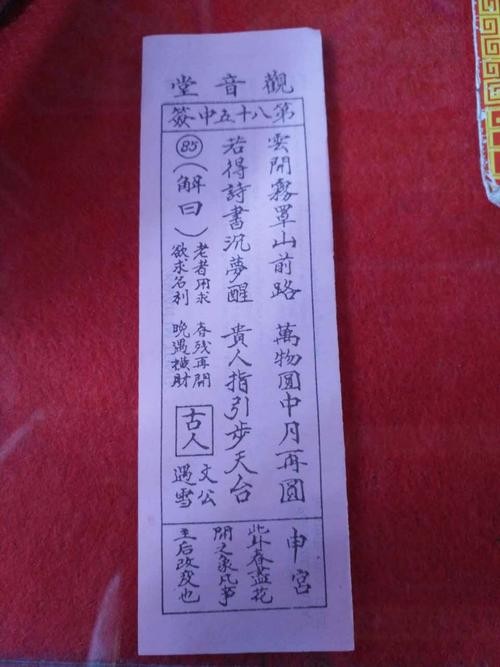 觀音堂
第八十五中簽
雲開霧罩山前路
萬物圓中月再圓
若得詩書沉夢醒
貴人指引步天台
85
(解曰)
老者用求
欲求名利
春残再開
晚遇橫財
古人
文公
遇雪
申宮
此卦春盡花
開之象凡事
主后改变也